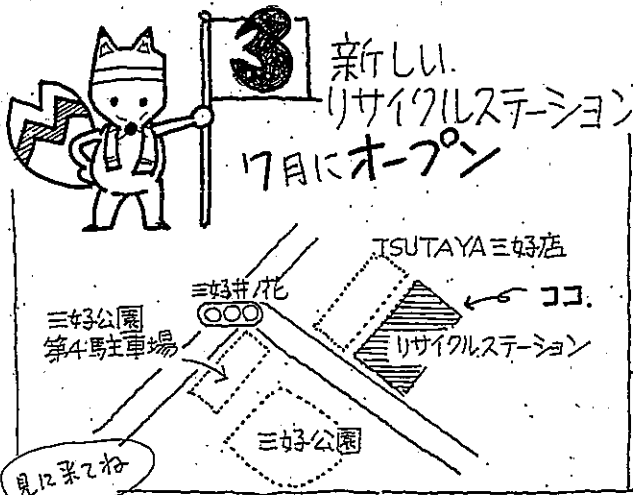 3
新しい
リサイクルステーション
7月にオープン
TSUTAYA三好店
三好井ノ花
ココ.
三好公園
第4駐車場
リサイクルステーション
三好公園
見に来てね